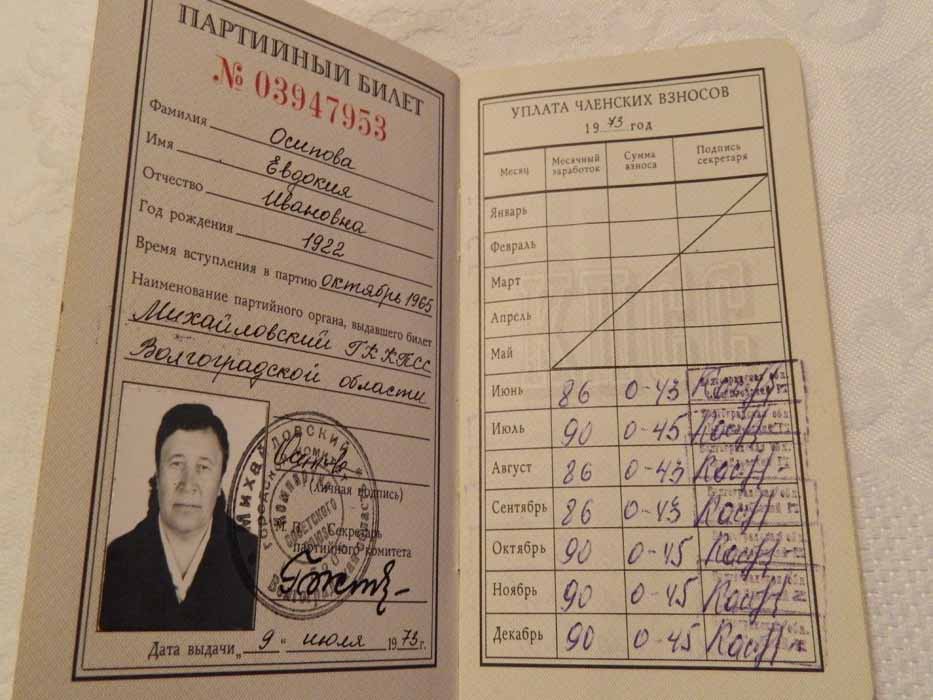 ПАРТИЙНЫЙ БИЛЕТ
№ 03947953
Фамилия Осипова
Имя Евдокия
Отчество Ивановна
Год рождения 1922
Время вступления в партию октябрь 1965
Наименование партийного органа, выдавшего билет
Михайловский ГК КПСС
Волгоградской области
(личная подпись)
Секретарь
партийного комитета
Дата выдачи „ 9 " июля 1973 г.
УПЛАТА ЧЛЕНСКИХ ВЗНОСОВ
1973 год
Месяц Месячный заработок Сумма взноса Подпись секретаря
Январь
Февраль
Март
Апрель
Май
Июнь 86 0-43
Июль 90 0-45
Август 86 0-43
Сентябрь 86 0-43
Октябрь 90 0-45
Ноябрь 90 0-45
Декабрь 90 0-45
КПСС